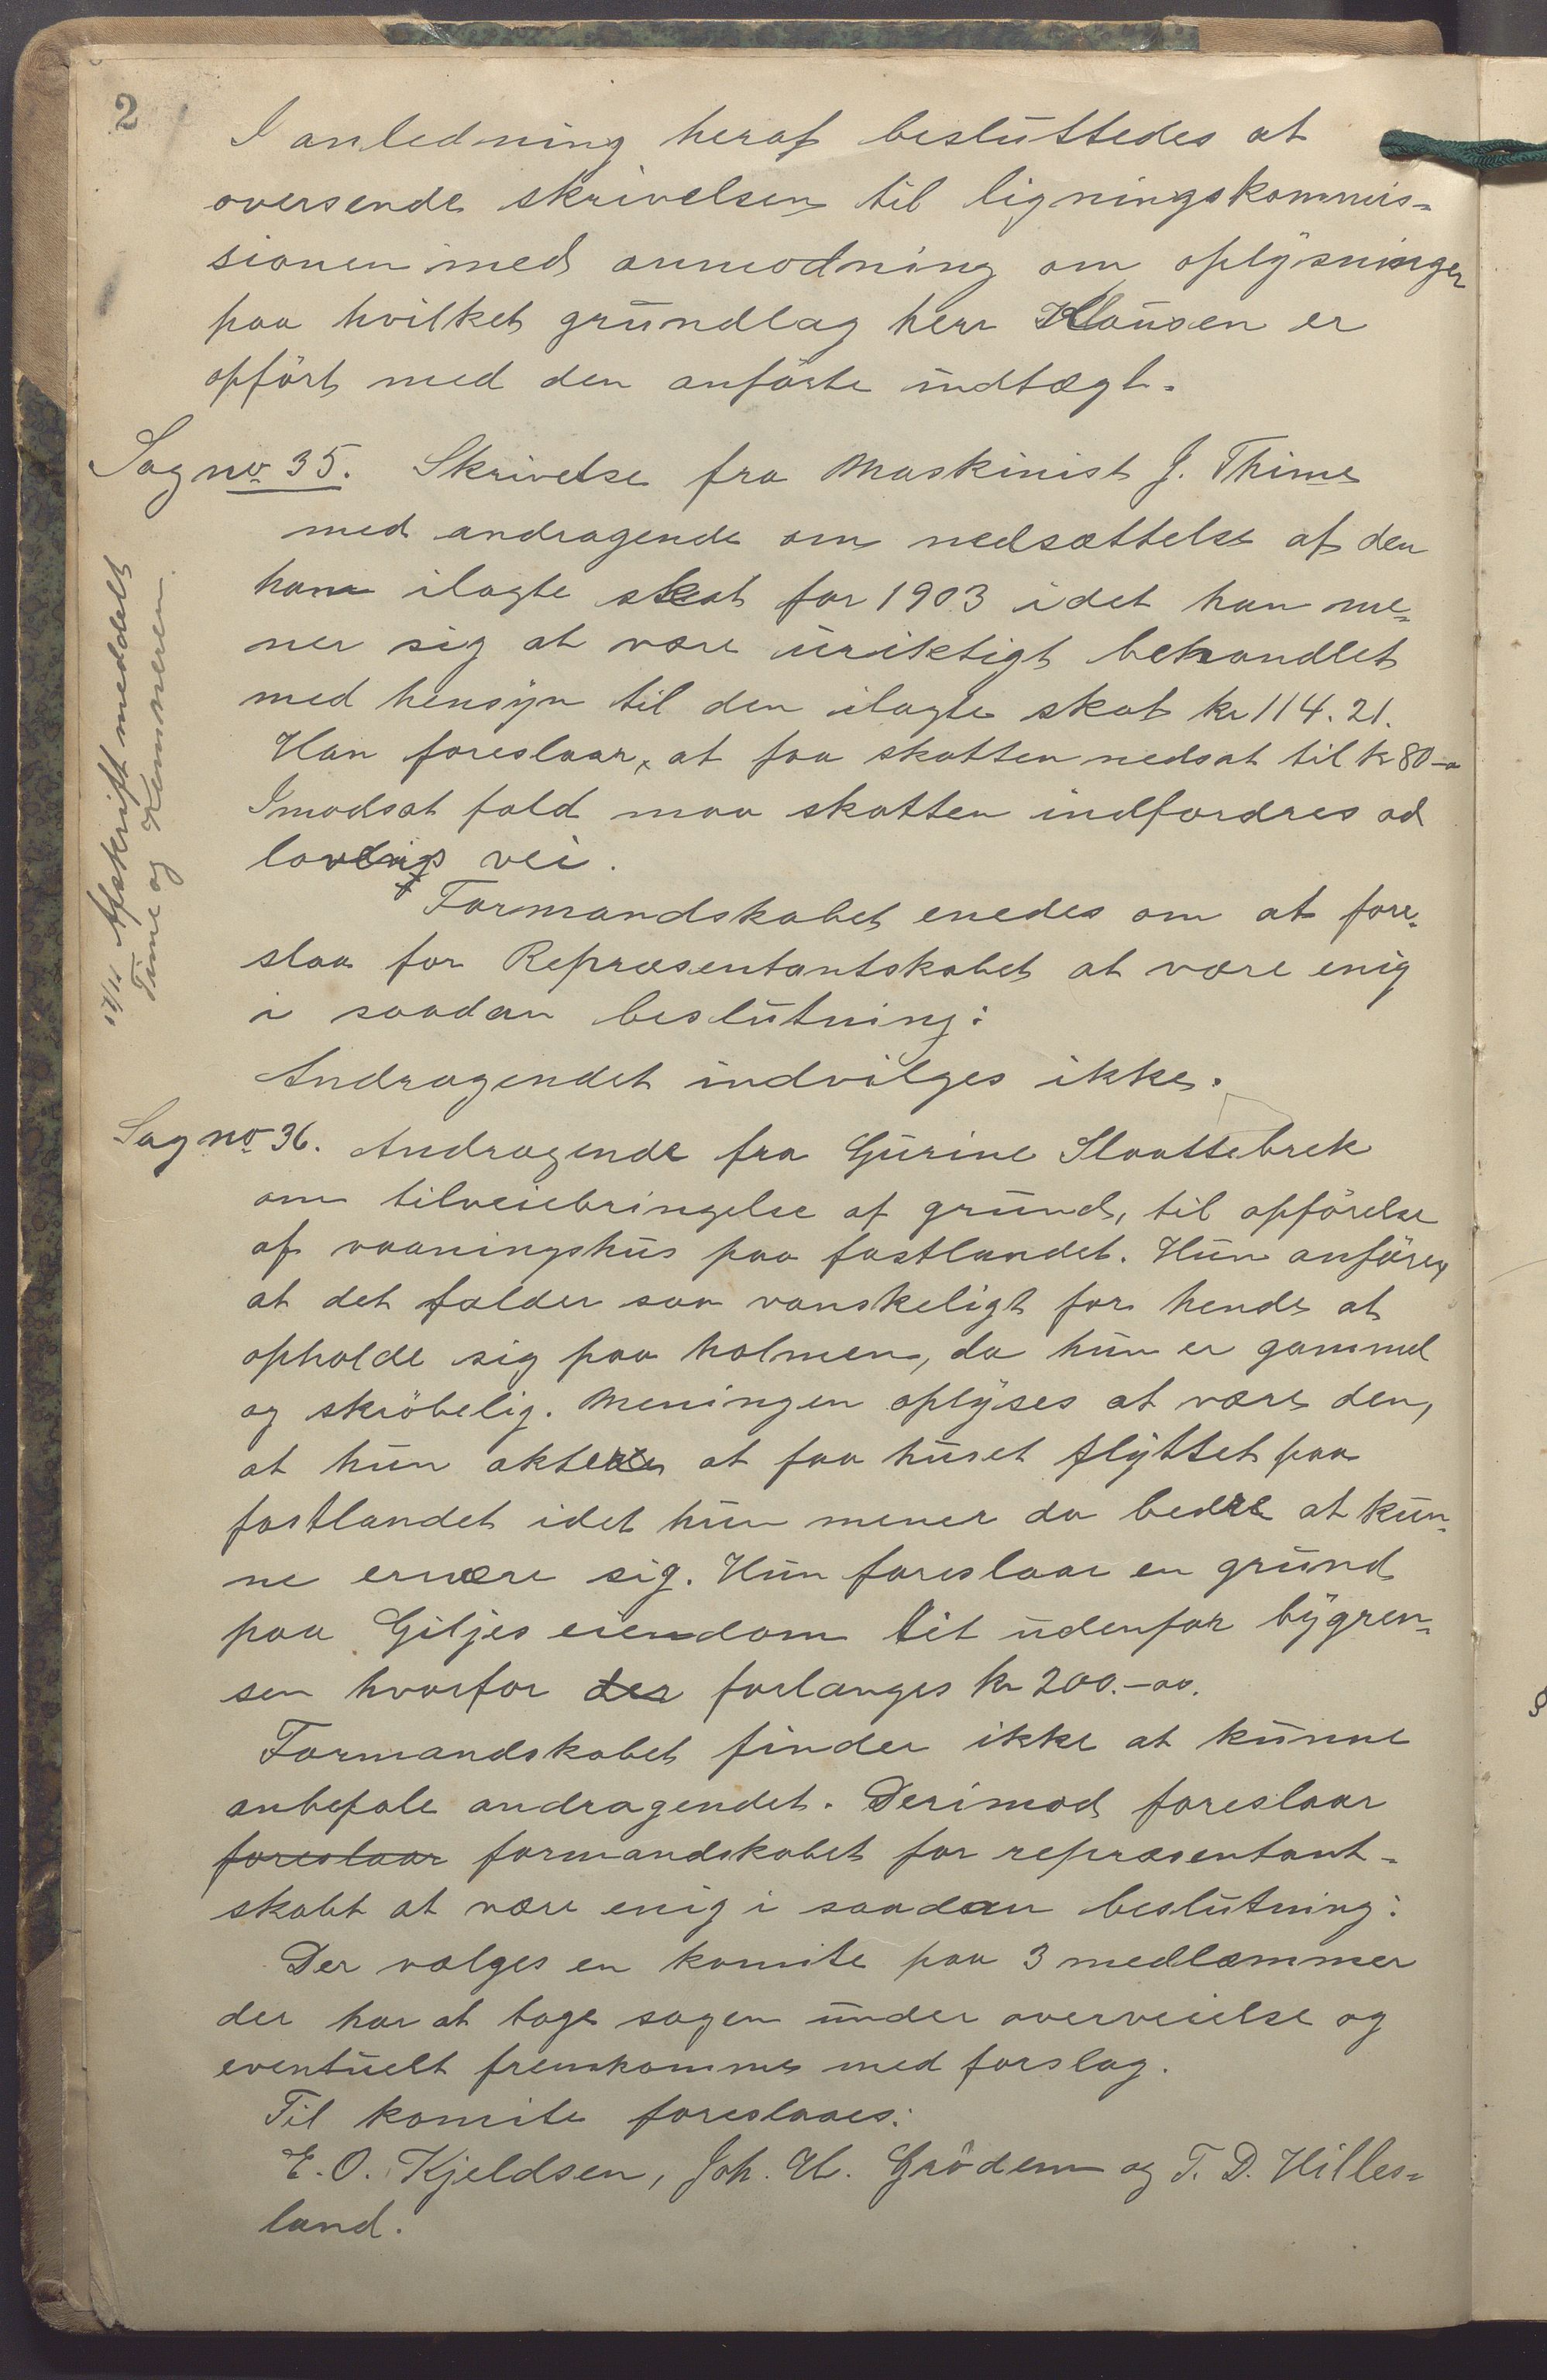 2
I anledning heraf besluttedes at
oversende skrivelsen til ligningskommis-
sionen med anmodning om oplysninger
paa hvilket grundlag herr Klausen er
opført med den anførte indtægt.
Sag no 35. Skrivelse fra Maskinist J. Thime
med andragende om nedsættelse af den
ham ilagte skat for 1903 idet han me-
ner sig at være uriktigt behandlet
med hensyn til den ilagte skat kr 114.21.
Han foreslaar, at faa skatten nedsat til kr 80-
Imodsat fald maa skatten indfordres ad
lovlig vei.
Formandskabet enedes om at fore-
slaa for Repræsentantskabet at være enig
i saadan beslutning:
Andragendet indvilges ikke.
17/11 Afskrift meddelt
Time og Kemneren.
Sag no 36. Andragende fra Gurine Slaattebrek
om tilveiebringelse af grund, til opførelse
af vaaningshus paa fastlandet. Hun anfører
at det falder saa vanskeligt for hende at
opholde sig paa holmen, da hun er gammel
og skrøbelig. Meningen oplyses at være den,
at hun akter at faa huset flyttet paa
fastlandet idet hun mener da bedre at kun-
ne ernære sig. Hun foreslaar en grund
paa Giljes eiendom lit udenfor bygren-
sen hvorfor der forlanges kr 200.-oo.
Formandskabet finder ikke at kunne
anbefale andragendet. Derimod foreslaar
foreslaar formandskabet for repræsentant-
skabt at være enig i saadan beslutning:
Der vælges en komite paa 3 medlæmmer
der har at tage sagen under overveielse og
eventuelt fremkomme med forslag.
Til komite foreslaaes:
E. O. Kjeldsen, Joh. H. Grødem og T. D. Hilles-
land.